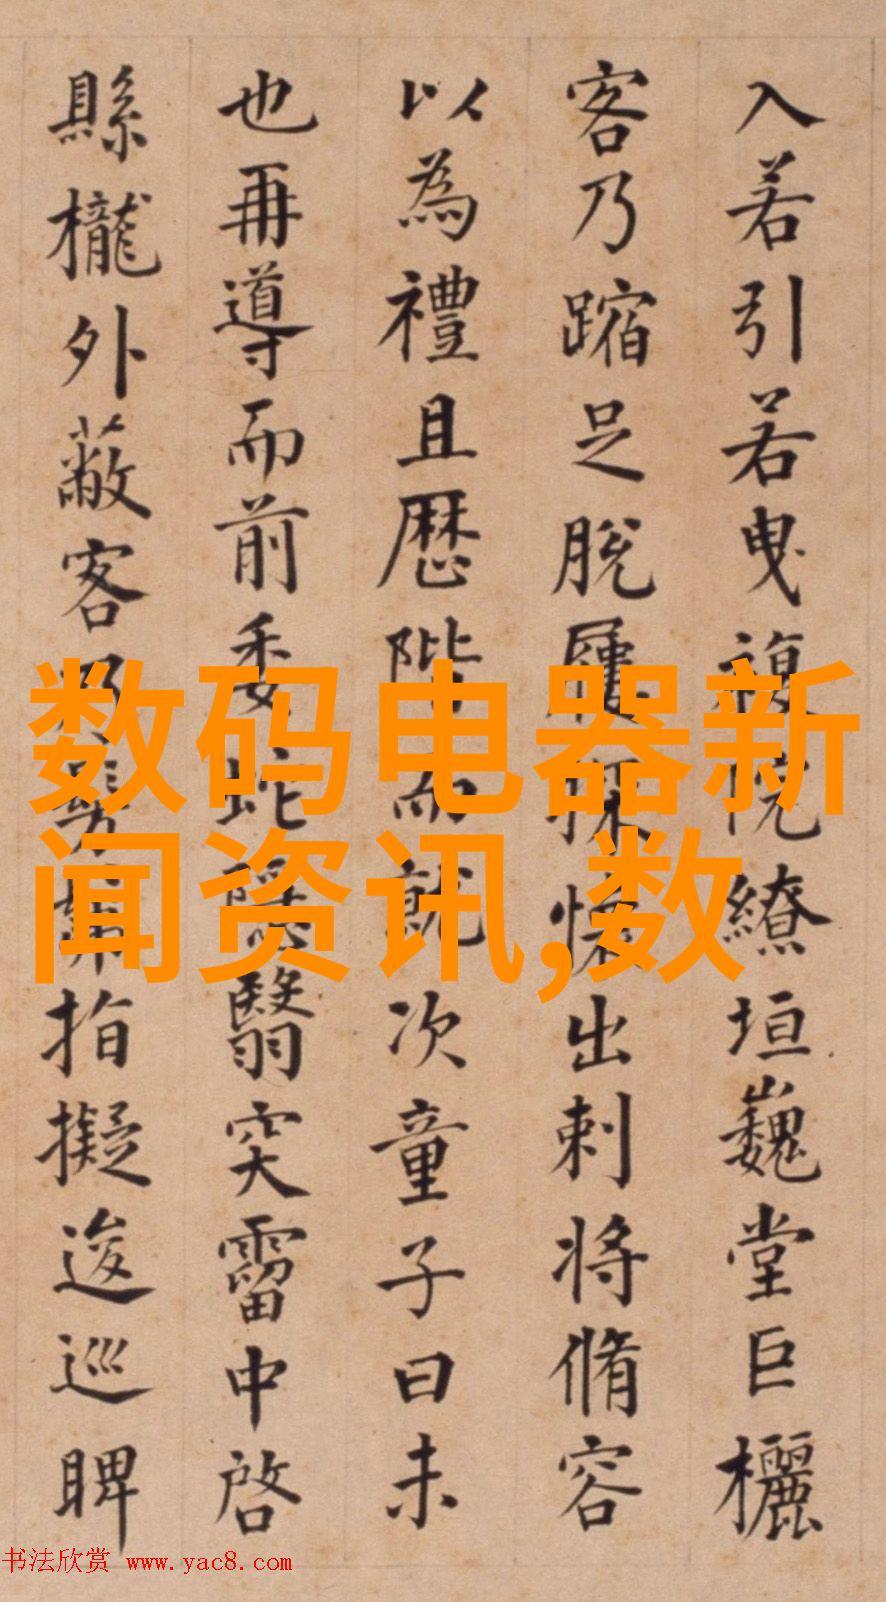 入若引若曳複院繚垣巍堂巨欐
客乃蹜足脫屨探懷出刺將脩容
以為禮且歷階而就次童子曰未
也再導而前委蛇隱翳突霤中啓
縣櫳外蔽客乃髣髴指擬逡巡睥
数码电器新
闻资讯,数
书法欣赏 www.yac8.com